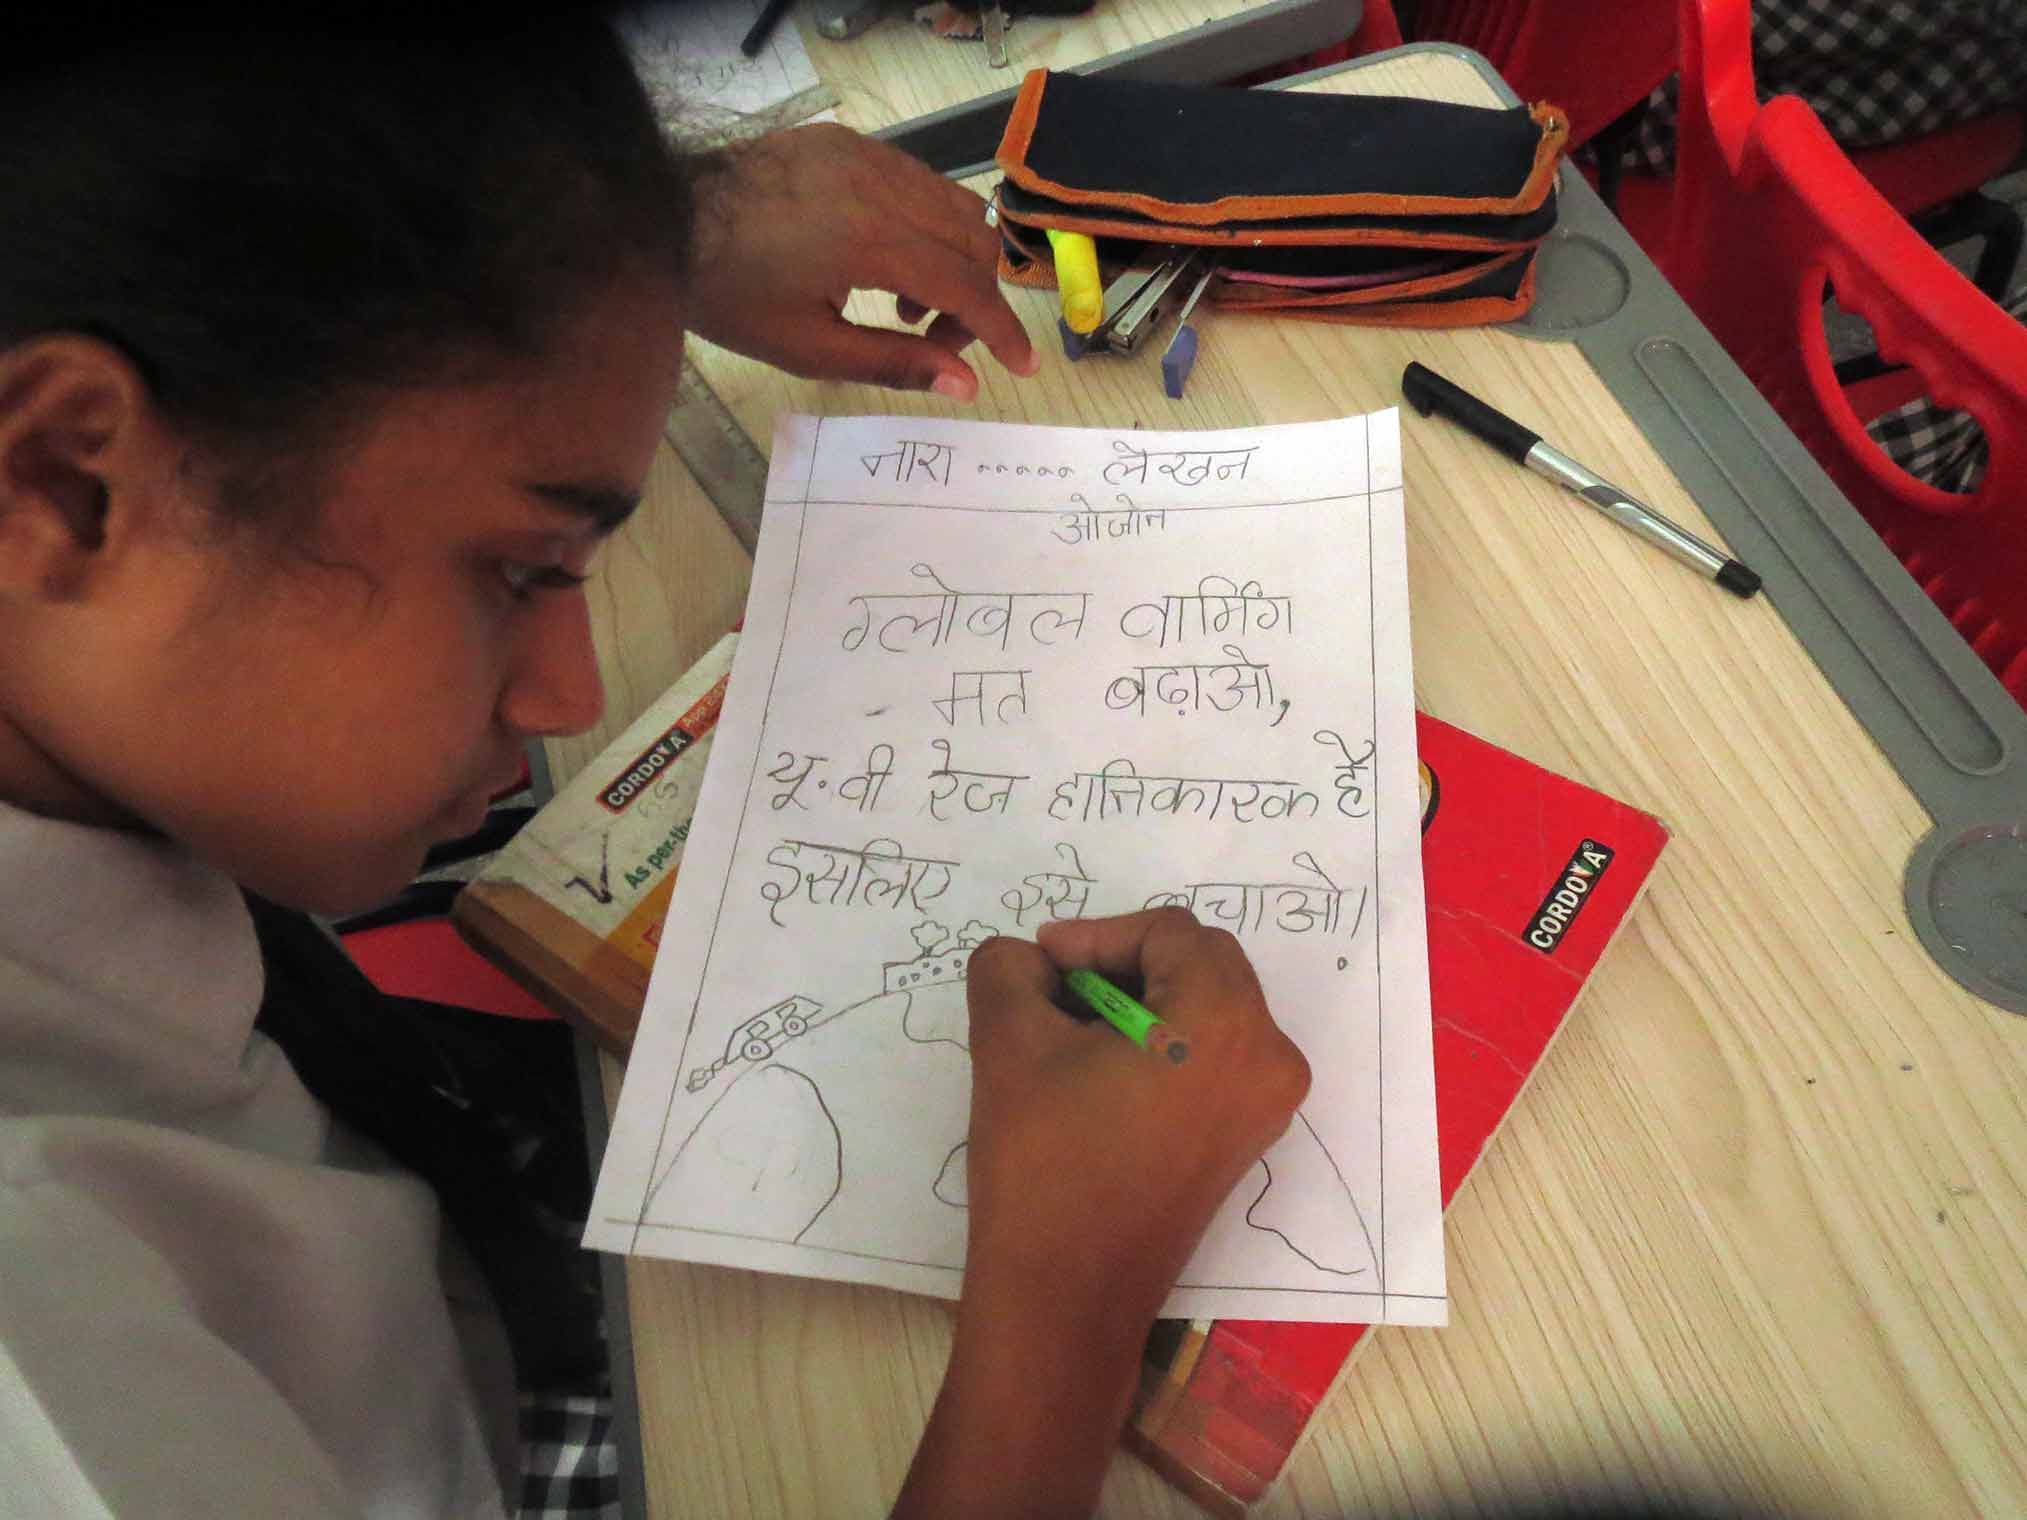 नारा ..... लेखन
ओजोन
ग्लोबल वार्मिंग
मत बढ़ाओ,
यू. वी रेज हानिकारक है
इसलिए इसे बचाओ।
CORDOVA
As per the
CORDOVA®